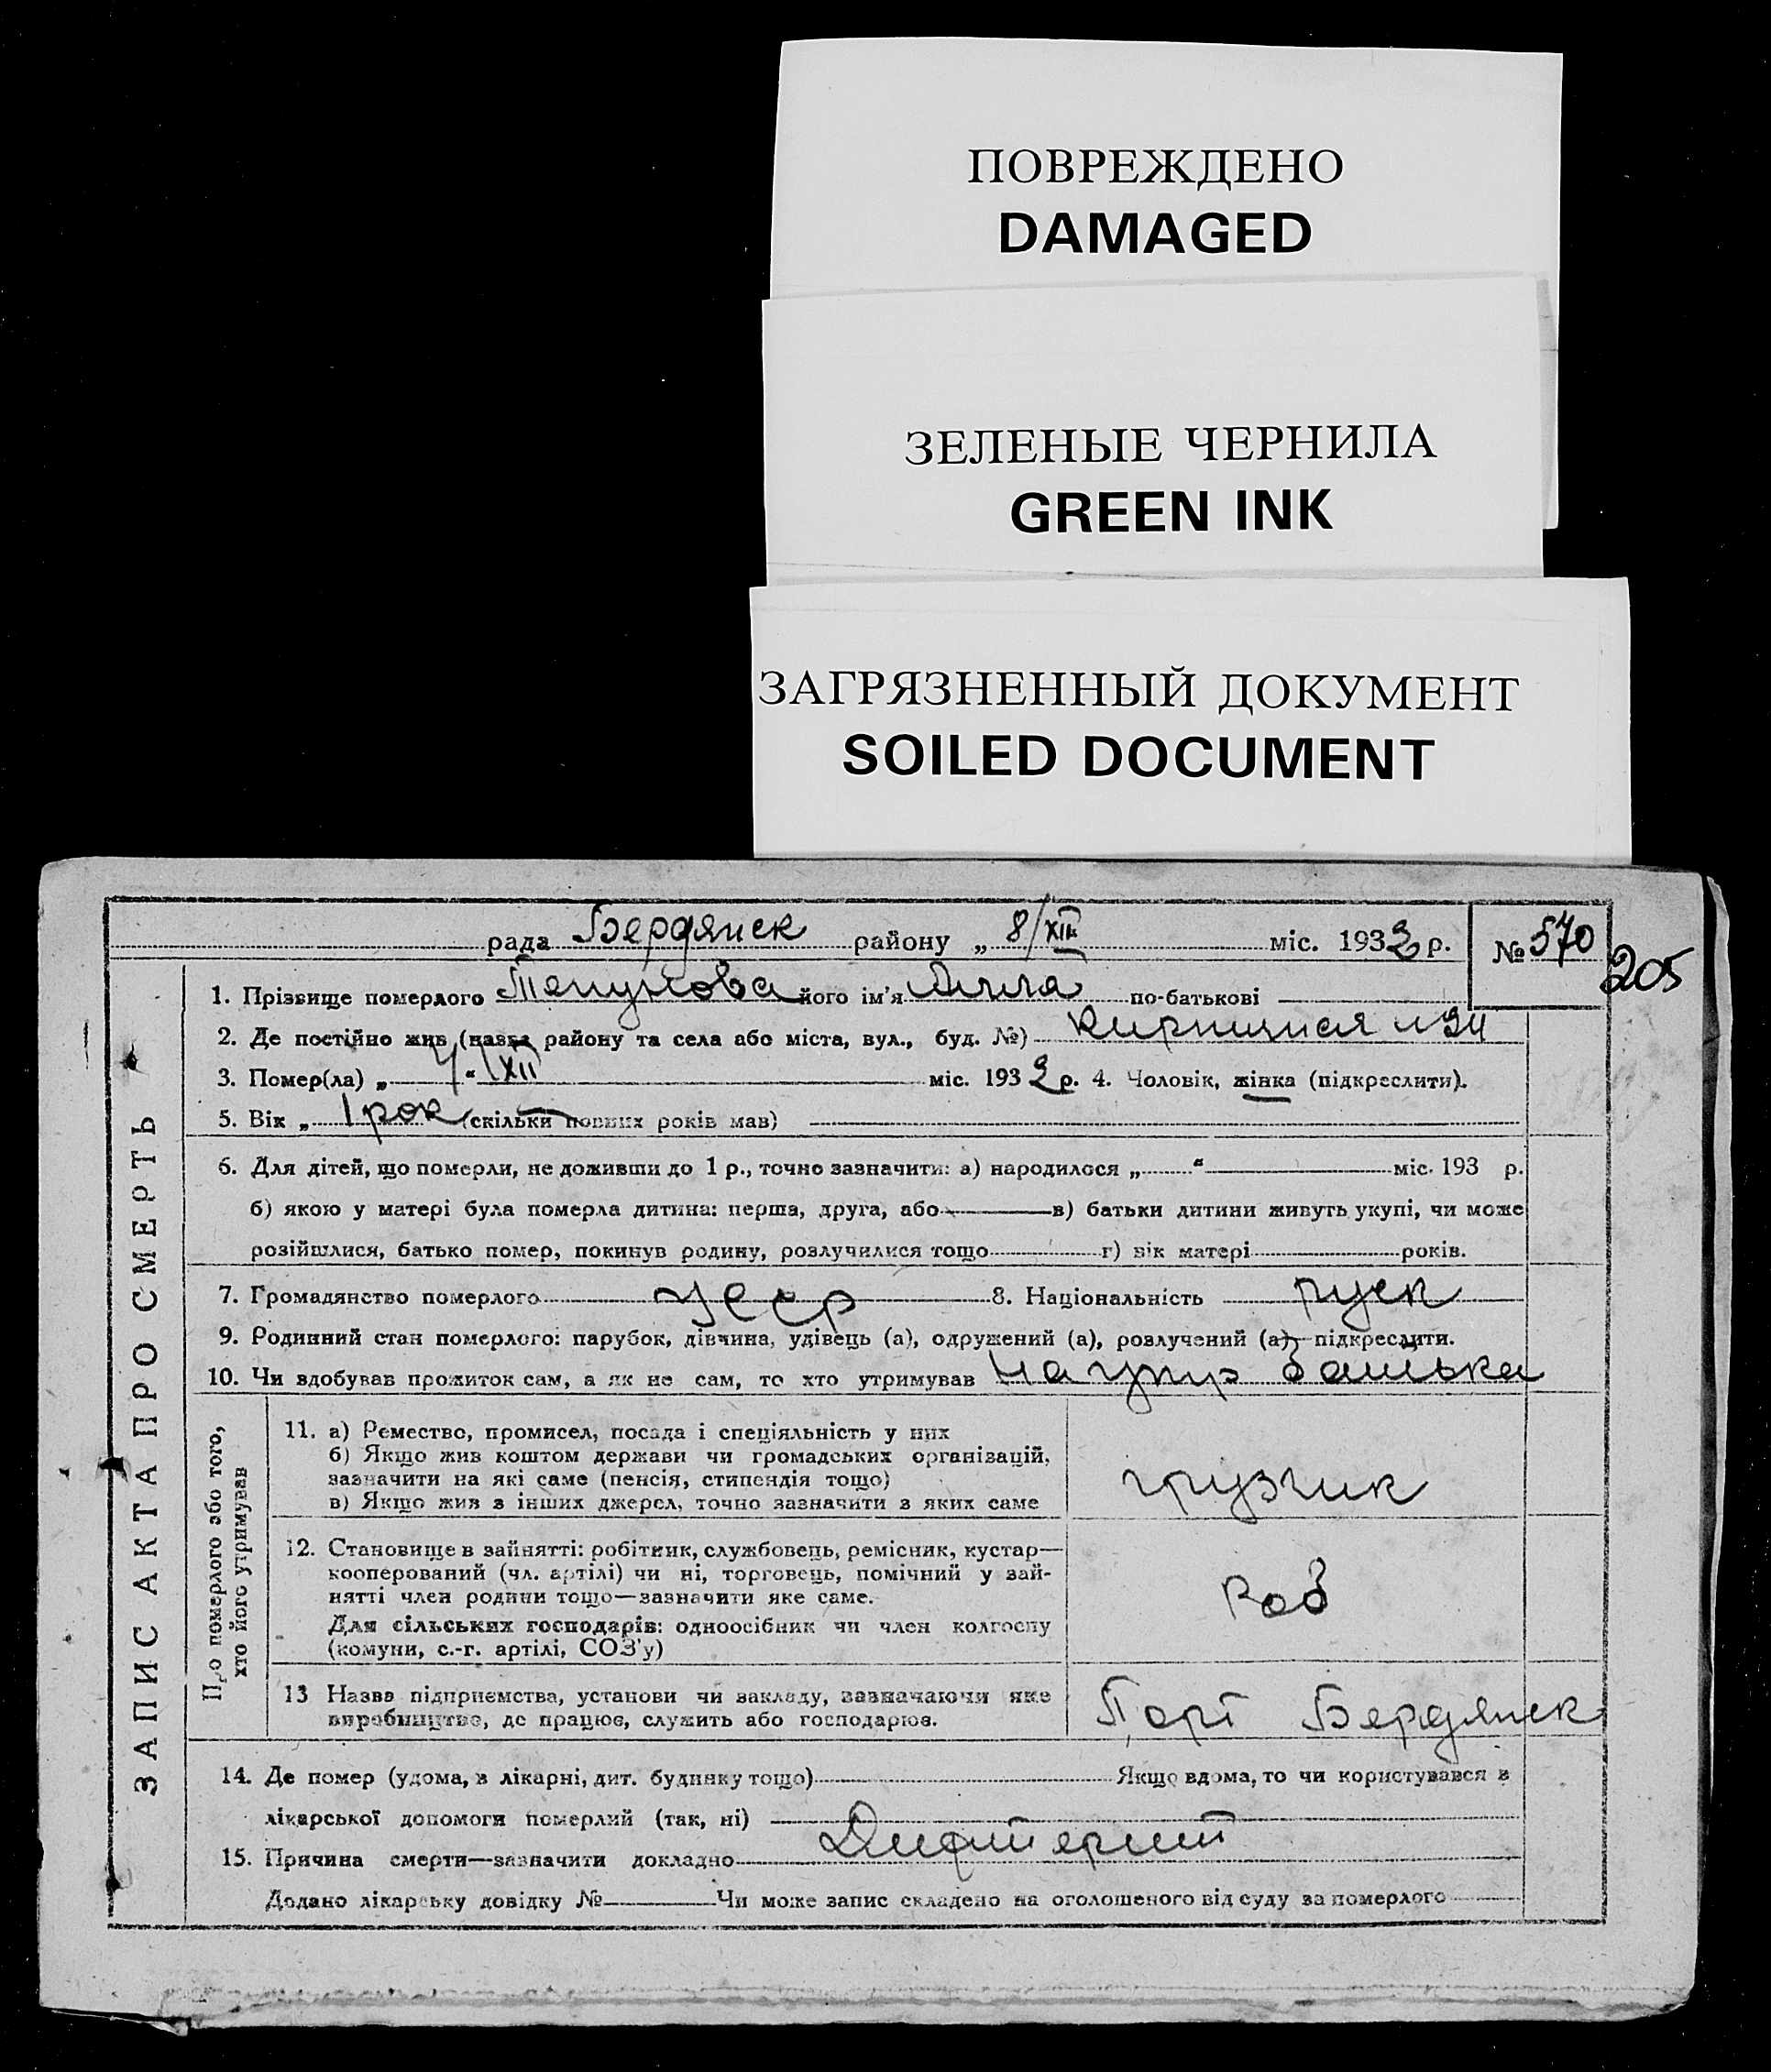 ПОВРЕЖДЕНО
DAMAGED
ЗЕЛЕНЫЕ ЧЕРНИЛА
GREEN INK
ЗАГРЯЗНЕННЫЙ ДОКУМЕНТ
SOILED DOCUMENT
рада Бердянск району „ 8/XII міс. 1933 р. № 570
205
ЗАПИС АКТА ПРО СМЕРТЬ
1. Прізвище померлого його ім'я по-батькові
2. Де постійно жив (назва району та села або міста, вул., буд. №)
3. Помер(ла) „ 4 “ XII міс. 1933 р. 4. Чоловік, жінка (підкреслити).
5. Вік „ 1 рок (скільки повних років мав)
6. Для дітей, що померли, не доживши до 1 р., точно зазначити: а) народилося „ “ міс. 193 р.
б) якою у матері була померла дитина: перша, друга, або в) батьки дитини живуть укупі, чи може
розійшлися, батько помер, покинув родину, розлучилися тощо г) вік матері років.
7. Громадянство померлого УССР 8. Національність руск
9. Родинний стан померлого: парубок, дівчина, удівець (а), одружений (а), розлучений (а)—підкреслити.
10. Чи здобував прожиток сам, а як не сам, то хто утримував на утр батька
Про померлого або того,
хто його утримував
11. а) Ремество, промисел, посада і спеціяльність у них
б) Якщо жив коштом держави чи громадських організацій,
зазначити на які саме (пенсія, стипендія тощо)
в) Якщо жив з інших джерел, точно зазначити з яких саме
грузчик
12. Становище в зайнятті: робітник, службовець, ремісник, кустар—
кооперований (чл. артілі) чи ні, торговець, помічний у зай-
нятті член родини тощо—зазначити яке саме.
Для сільських господарів: одноосібник чи член колгоспу
(комуни, с.-г. артілі, СОЗ'у)
Роб
13 Назва підприємства, установи чи закладу, зазначаючи яке
виробництво, де працює, служить або господарює.
Порт Бердянск
14. Де помер (удома, в лікарні, дит. будинку тощо) Якщо вдома, то чи користувався з
лікарської допомоги померлий (так, ні)
15. Причина смерти—зазначити докладно Дифтерит
Додано лікарську довідку № Чи може запис складено на оголошеного від суду за померлого